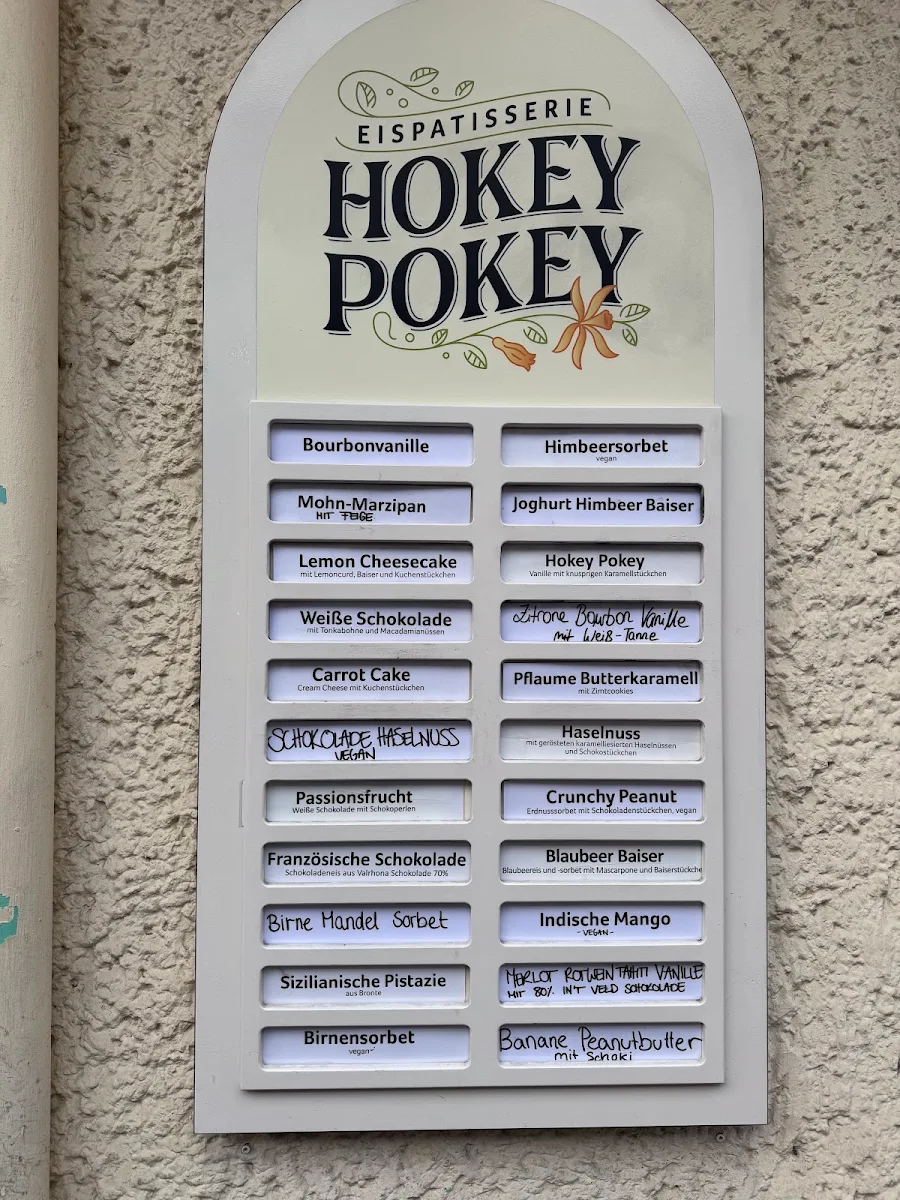 EISPATISSERIE
HOKEY
POKEY
Bourbonvanille
Mohn-Marzipan
MIT FEIGE
Lemon Cheesecake
mit Lemoncurd, Baiser und Kuchenstückchen
Weiße Schokolade
mit Tonkabohne und Macadamianüssen
Carrot Cake
Cream Cheese mit Kuchenstückchen
SCHOKOLADE HASELNUSS
VEGAN
Passionsfrucht
Weiße Schokolade mit Schokoperlen
Französische Schokolade
Schokoladeneis aus Valrhona Schokolade 70%
Birne Mandel Sorbet
Sizilianische Pistazie
aus Bronte
Birnensorbet
vegan
Himbeersorbet
vegan
Joghurt Himbeer Baiser
Hokey Pokey
Vanille mit knusprigen Karamellstückchen
Zitrone Bourbon Vanille
mit Weiß-Tanne
Pflaume Butterkaramell
mit Zimtcookies
Haselnuss
mit gerösteten karamelliesierten Haselnüssen
und Schokostückchen
Crunchy Peanut
Erdnusssorbet mit Schokoladenstückchen, vegan
Blaubeer Baiser
Blaubeereis und -sorbet mit Mascarpone und Baiserstücke
Indische Mango
-VEGAN-
MERLOT ROTWEIN TAHITI VANILLE
MIT 80% IN'T VELD SCHOKOLADE
Banane Peanutbutter
mit Schoki